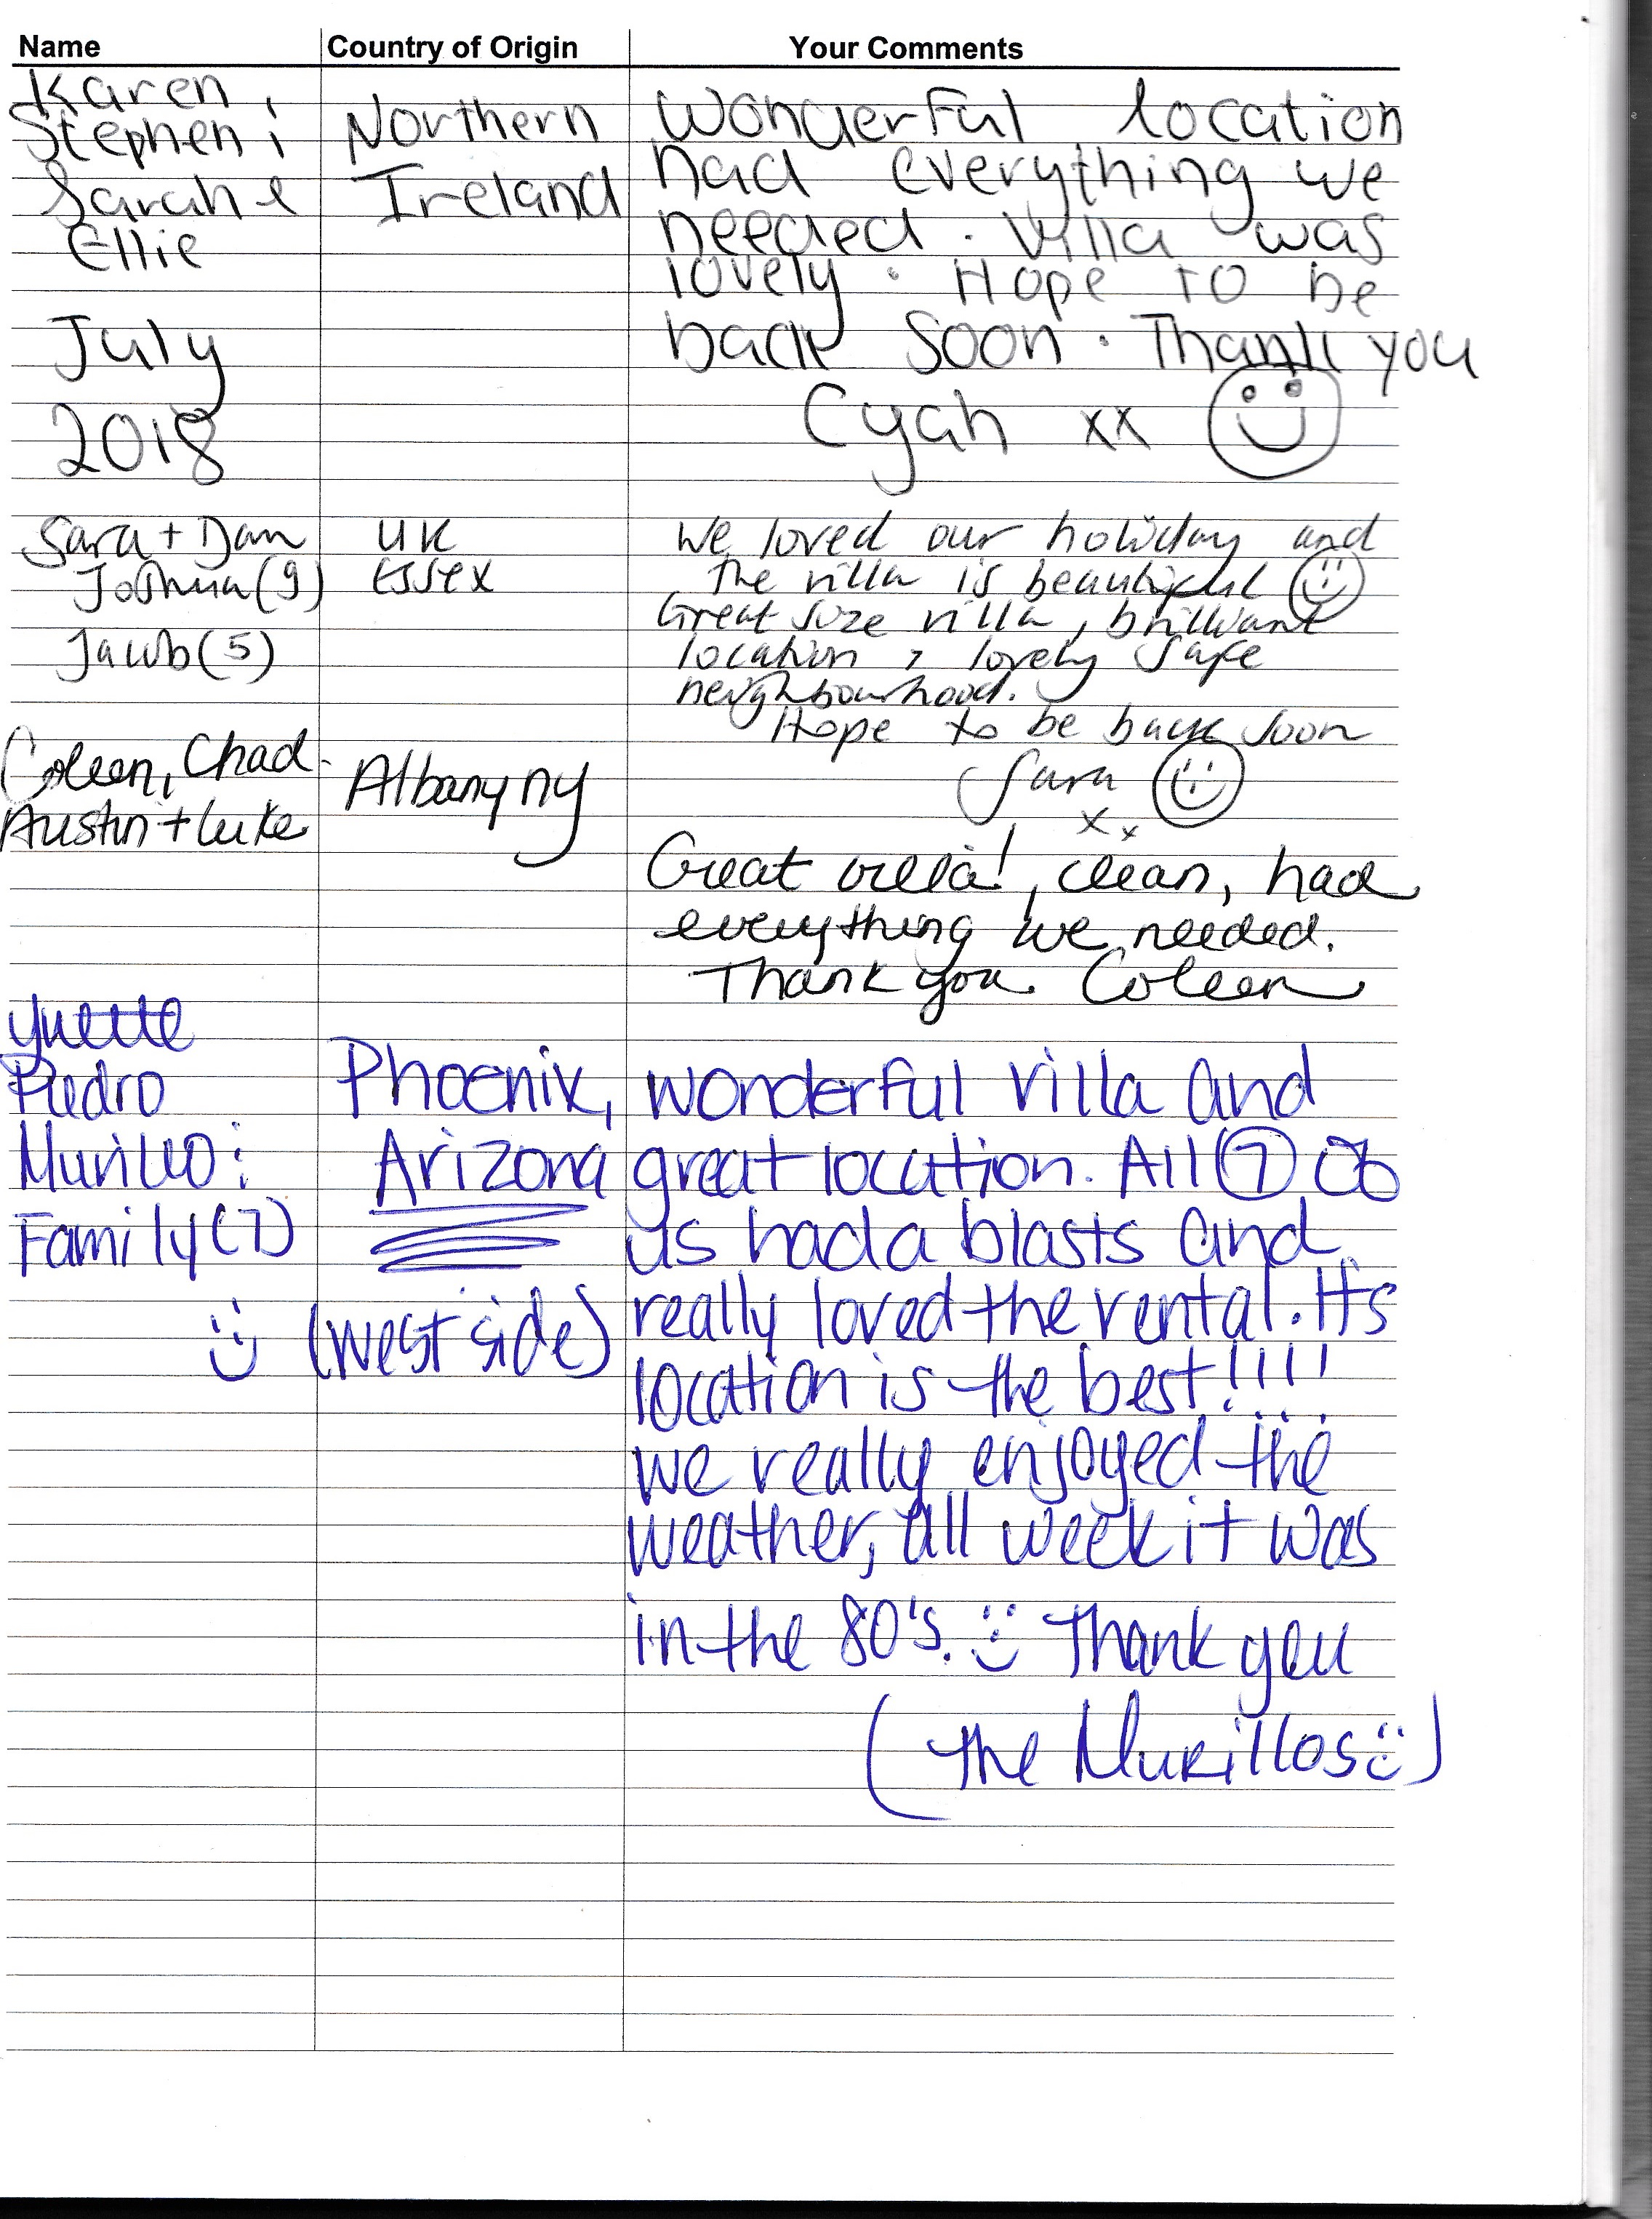 Name Country of Origin Your Comments
Karen,
Stephen,
Sarah &
Ellie
July
2018
Northern
Ireland
Wonderful location
had everything we
needed. Villa was
lovely. Hope to be
back soon. Thank you
Cyah xx
Sara + Dan
Joshua (9)
Jacob (5)
UK
Essex
We loved our holiday and
the villa is beautiful
Great size villa, brilliant
location, lovely safe
neighbourhood.
Hope to be back soon
Sara
xx
Coleen, Chad
Austin + Luke
Albany ny
Great villa!, clean, had
everything we needed.
Thank you. Coleen
Yvette
Pedro
Murillo:
Family (7)
Phoenix,
Arizona
(west side)
wonderful villa and
great location. All 7 of
us had a blasts and
really loved the rental. Its
location is the best!!!!
we really enjoyed the
weather, all week it was
in the 80's. Thank you
(the Murillos)